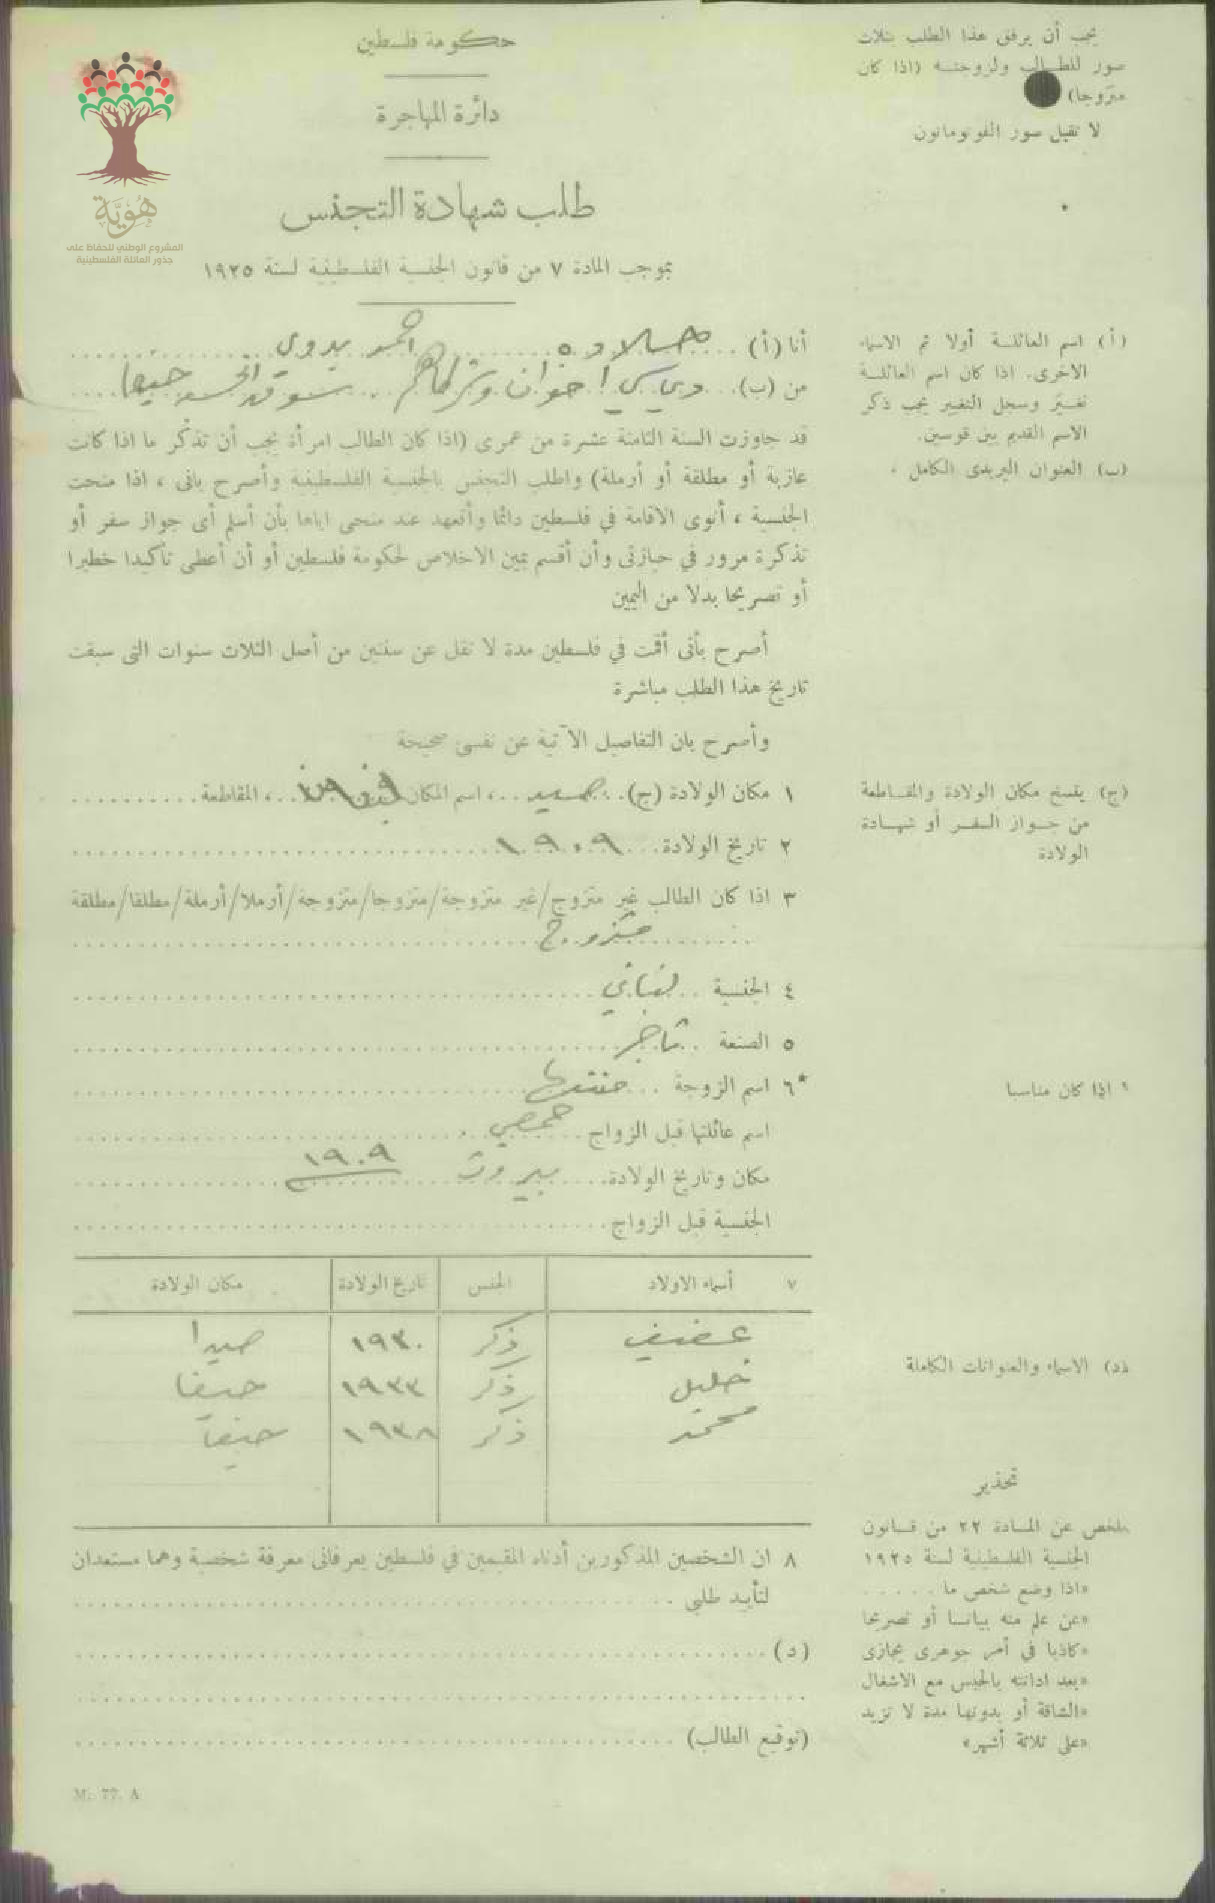 حكومة فلسطين
دائرة المهاجرة
طلب شهادة التجنس
بموجب المادة ٧ من قانون الجنسية الفلسطينية لسنة ١٩٢٥
يجب أن يرفق هذا الطلب بثلاث
صور للطالب ولزوجته (اذا كان
متزوجا)
لا تقبل صور الفوتوماتون
هُويَّة
المشروع الوطني للحفاظ على
جذور العائلة الفلسطينية
أنا (أ) احمد بدوي
من (ب) اخوان وشركاهم حيفا
قد جاوزت السنة الثامنة عشرة من عمرى (اذا كان الطالب امرأة يجب أن تذكر ما اذا كانت
عازبة أو مطلقة أو أرملة) واطلب التجنس بالجنسية الفلسطينية وأصرح بانى ، اذا منحت
الجنسية ، أنوى الاقامة في فلسطين دائما وأتعهد عند منحى اياها بأن أسلم أى جواز سفر أو
تذكرة مرور في حيازتى وأن أقسم يمين الاخلاص لحكومة فلسطين أو أن أعطى تأكيدا خطيرا
أو تصريحا بدلا من اليمين
أصرح بأنى أقمت في فلسطين مدة لا تقل عن سنتين من أصل الثلاث سنوات التى سبقت
تاريخ هذا الطلب مباشرة
وأصرح بان التفاصيل الآتية عن نفسى صحيحة
(أ) اسم العائلة أولا ثم الاسماء
الاخرى. اذا كان اسم العائلة
تغير وسجل التغيير يجب ذكر
الاسم القديم بين قوسين.
(ب) العنوان البريدى الكامل .
١ مكان الولادة (ج) صيدا ، اسم المكان ، المقاطعة
٢ تاريخ الولادة ١٩٠٩
٣ اذا كان الطالب غير متزوج/غير متزوجة/متزوجا/متزوجة/أرملا/أرملة/مطلقا/مطلقة
متزوج
٤ الجنسية لبناني
٥ الصنعة تاجر
*٦ اسم الزوجة
اسم عائلتها قبل الزواج حمصي
مكان وتاريخ الولادة بيروت ١٩٠٩
الجنسية قبل الزواج
(ج) ينسخ مكان الولادة والمقاطعة
من جواز السفر أو شهادة
الولادة
* اذا كان مناسبا
٧ أسماء الاولاد الجنس تاريخ الولادة مكان الولادة
عفيف ذكر ١٩٣٠ صيدا
خليل ذكر ١٩٣٣ حيفا
محمد ذكر ١٩٣٨ حيفا
٨ ان الشخصين المذكورين أدناه المقيمين في فلسطين يعرفانى معرفة شخصية وهما مستعدان
لتأييد طلبى
(د)
(توقيع الطالب)
(د) الاسماء والعنوانات الكاملة
تحذير
ملخص عن المادة ٢٢ من قانون
الجنسية الفلسطينية لسنة ١٩٢٥
«اذا وضع شخص ما . . . . .
«عن علم منه بيانا أو تصريحا
«كاذبا في أمر جوهرى يجازى
«بعد ادانته بالحبس مع الاشغال
«الشاقة أو بدونها مدة لا تزيد
«على ثلاثة أشهر»
M. 77. A